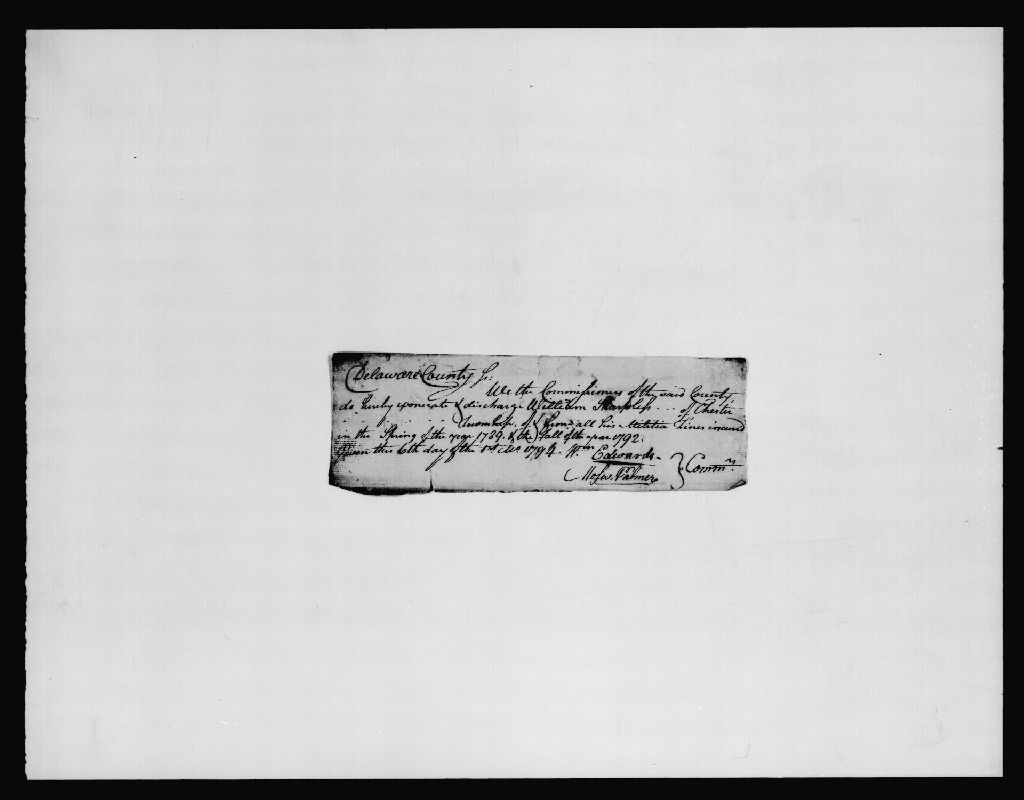 Delaware County ss:
We the Commissioners of the said County
do hereby exonerate & discharge William Sharpless . . . of Chester
Township of & from all his Militia Fines incurred
in the Spring of the year 1789 & the Fall of the year 1792.
Given this 6th day of the 1794. Wm Edwards
Moses Palmer } Commrs